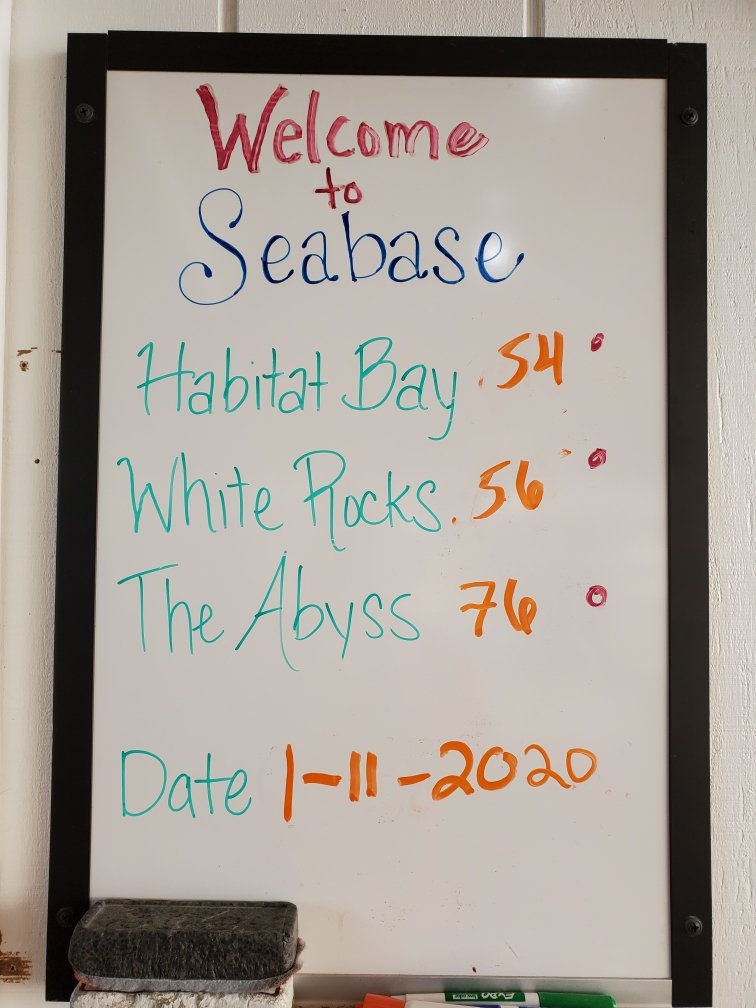 Welcome
to
Seabase
Habitat Bay .54°
White Rocks .56°
The Abyss 76°
Date 1-11-2020
EXPO